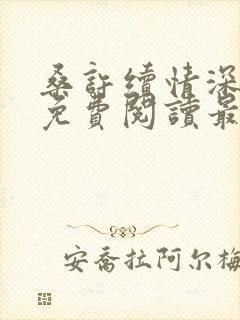 桑許續情深
免費閱讀最
安喬拉阿尔梅